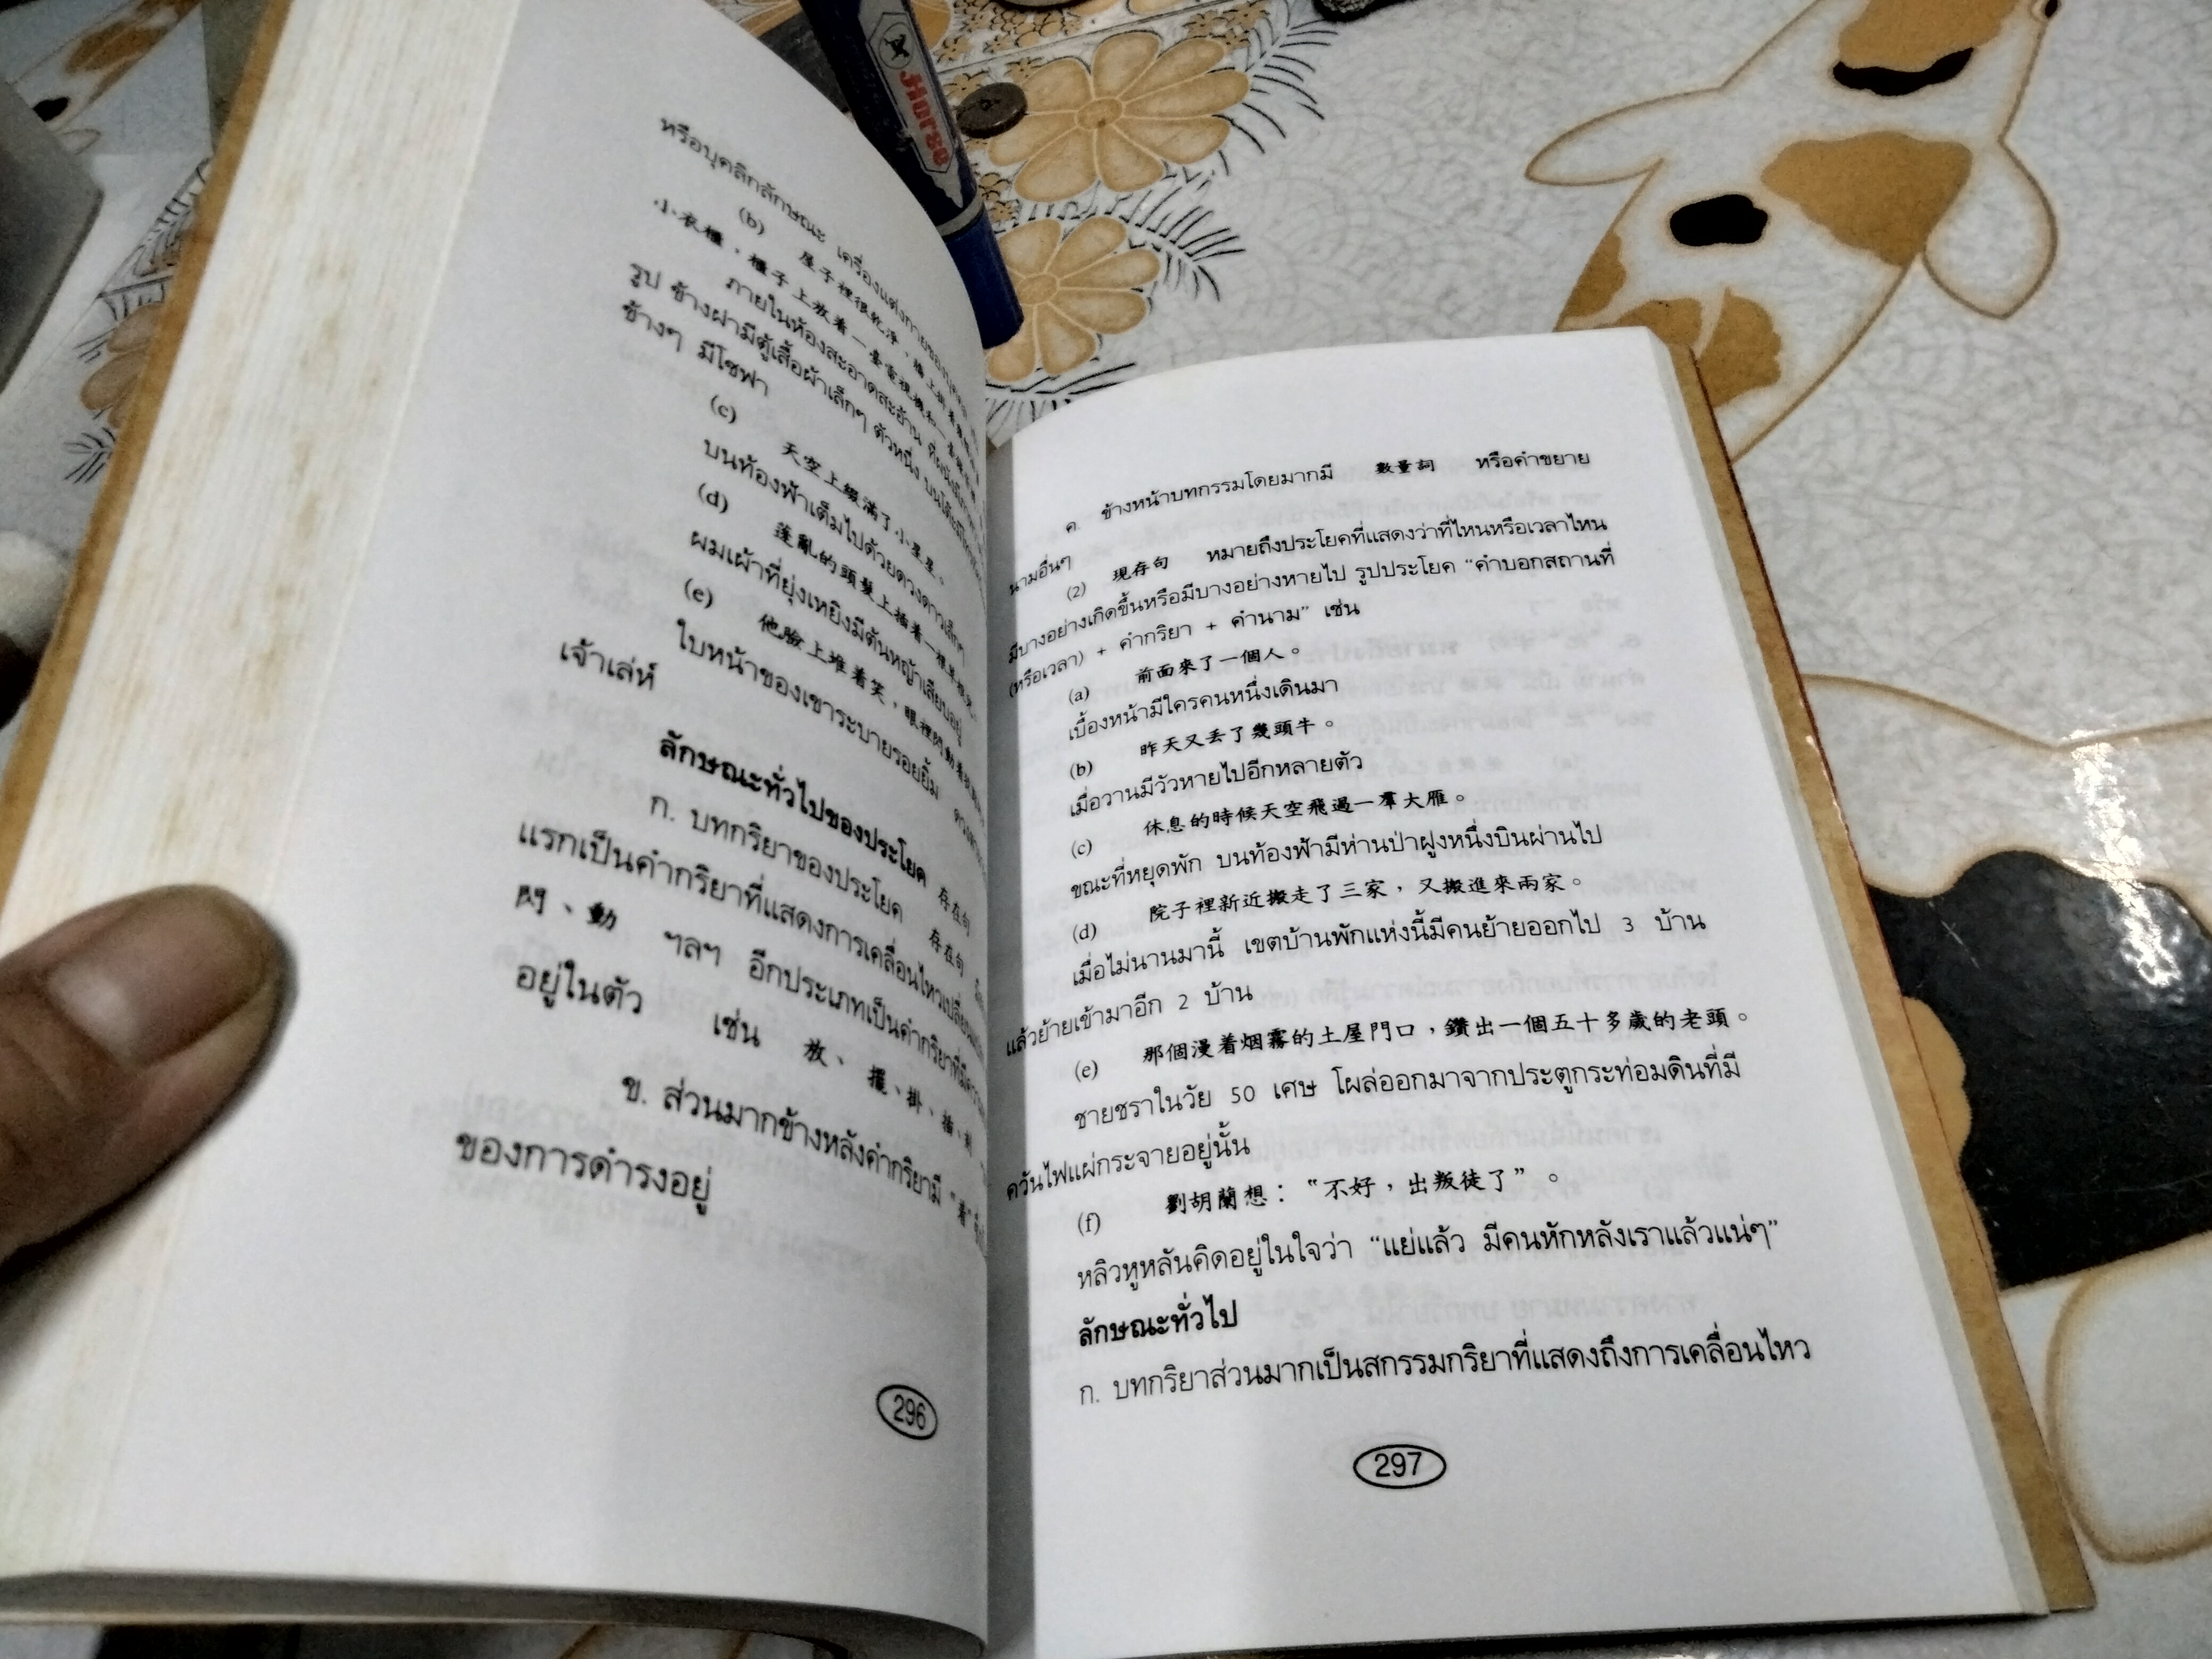 หรือบุคลิกลักษณะ เครื่องแต่งกายของ
(b) 屋子裡很乾淨，牆上掛着
小衣櫃，櫃子上放着一臺電視機和一
ภายในห้องสะอาดสะอ้าน ที่ผนังมี
รูป ข้างฝามีตู้เสื้อผ้าเล็กๆ ตัวหนึ่ง บนโต๊ะมี
ข้างๆ มีโซฟา
(c) 天空上綴滿了小星星。
บนท้องฟ้าเต็มไปด้วยดวงดาวเล็กๆ
(d) 蓬亂的頭髮上插着一根草
ผมเผ้าที่ยุ่งเหยิงมีต้นหญ้าเสียบอยู่
(e) 他臉上堆着笑，眼裡閃動着
ใบหน้าของเขาระบายรอยยิ้ม
เจ้าเล่ห์
ลักษณะทั่วไปของประโยค 存在句
ก. บทกริยาของประโยค 存在句
แรกเป็นคำกริยาที่แสดงการเคลื่อนไหวเปลี่ยน
閃、動 ฯลฯ อีกประเภทเป็นคำกริยาที่มี
อยู่ในตัว เช่น 放、擺、掛、插、
ข. ส่วนมากข้างหลังคำกริยามี "着"
ของการดำรงอยู่
296
ค. ข้างหน้าบทกรรมโดยมากมี 數量詞 หรือคำขยาย
นามอื่นๆ
(2) 現存句 หมายถึงประโยคที่แสดงว่าที่ไหนหรือเวลาไหน
มีบางอย่างเกิดขึ้นหรือมีบางอย่างหายไป รูปประโยค "คำบอกสถานที่
(หรือเวลา) + คำกริยา + คำนาม" เช่น
(a) 前面來了一個人。
เบื้องหน้ามีใครคนหนึ่งเดินมา
(b) 昨天又丟了幾頭牛。
เมื่อวานมีวัวหายไปอีกหลายตัว
(c) 休息的時候天空飛過一羣大雁。
ขณะที่หยุดพัก บนท้องฟ้ามีห่านป่าฝูงหนึ่งบินผ่านไป
(d) 院子裡新近搬走了三家，又搬進來兩家。
เมื่อไม่นานมานี้ เขตบ้านพักแห่งนี้มีคนย้ายออกไป 3 บ้าน
แล้วย้ายเข้ามาอีก 2 บ้าน
(e) 那個漫着烟霧的土屋門口，鑽出一個五十多歲的老頭。
ชายชราในวัย 50 เศษ โผล่ออกมาจากประตูกระท่อมดินที่มี
ควันไฟแผ่กระจายอยู่นั้น
(f) 劉胡蘭想："不好，出叛徒了"。
หลิวหูหลันคิดอยู่ในใจว่า "แย่แล้ว มีคนหักหลังเราแล้วแน่ๆ"
ลักษณะทั่วไป
ก. บทกริยาส่วนมากเป็นสกรรมกริยาที่แสดงถึงการเคลื่อนไหว
297
Horse